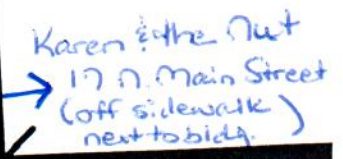 Karen & the Nut
17 N. Main Street
(off sidewalk
next to bldg.)